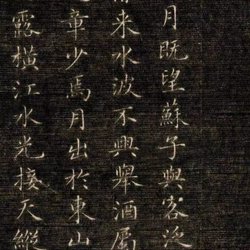 月既望蘇子與客泛
徐來水波不興舉酒屬
章少焉月出於東山
露橫江水光接天縱